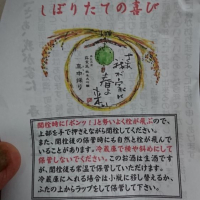 しぼりたての喜び
開栓時に「ポンッ!」と勢いよく栓が飛ぶので、
上部を手で押さえながら開栓してください。
また、開栓後の保管時にも自然と栓が飛んで
いることがあります。冷蔵庫で横や斜めにして
保管しないでください。このお酒は生酒です
が、開栓後も常温で保管していただけます。
冷蔵庫に入れる場合は小瓶に移し替えるか、
ふたの上からラップをして保管して下さい。